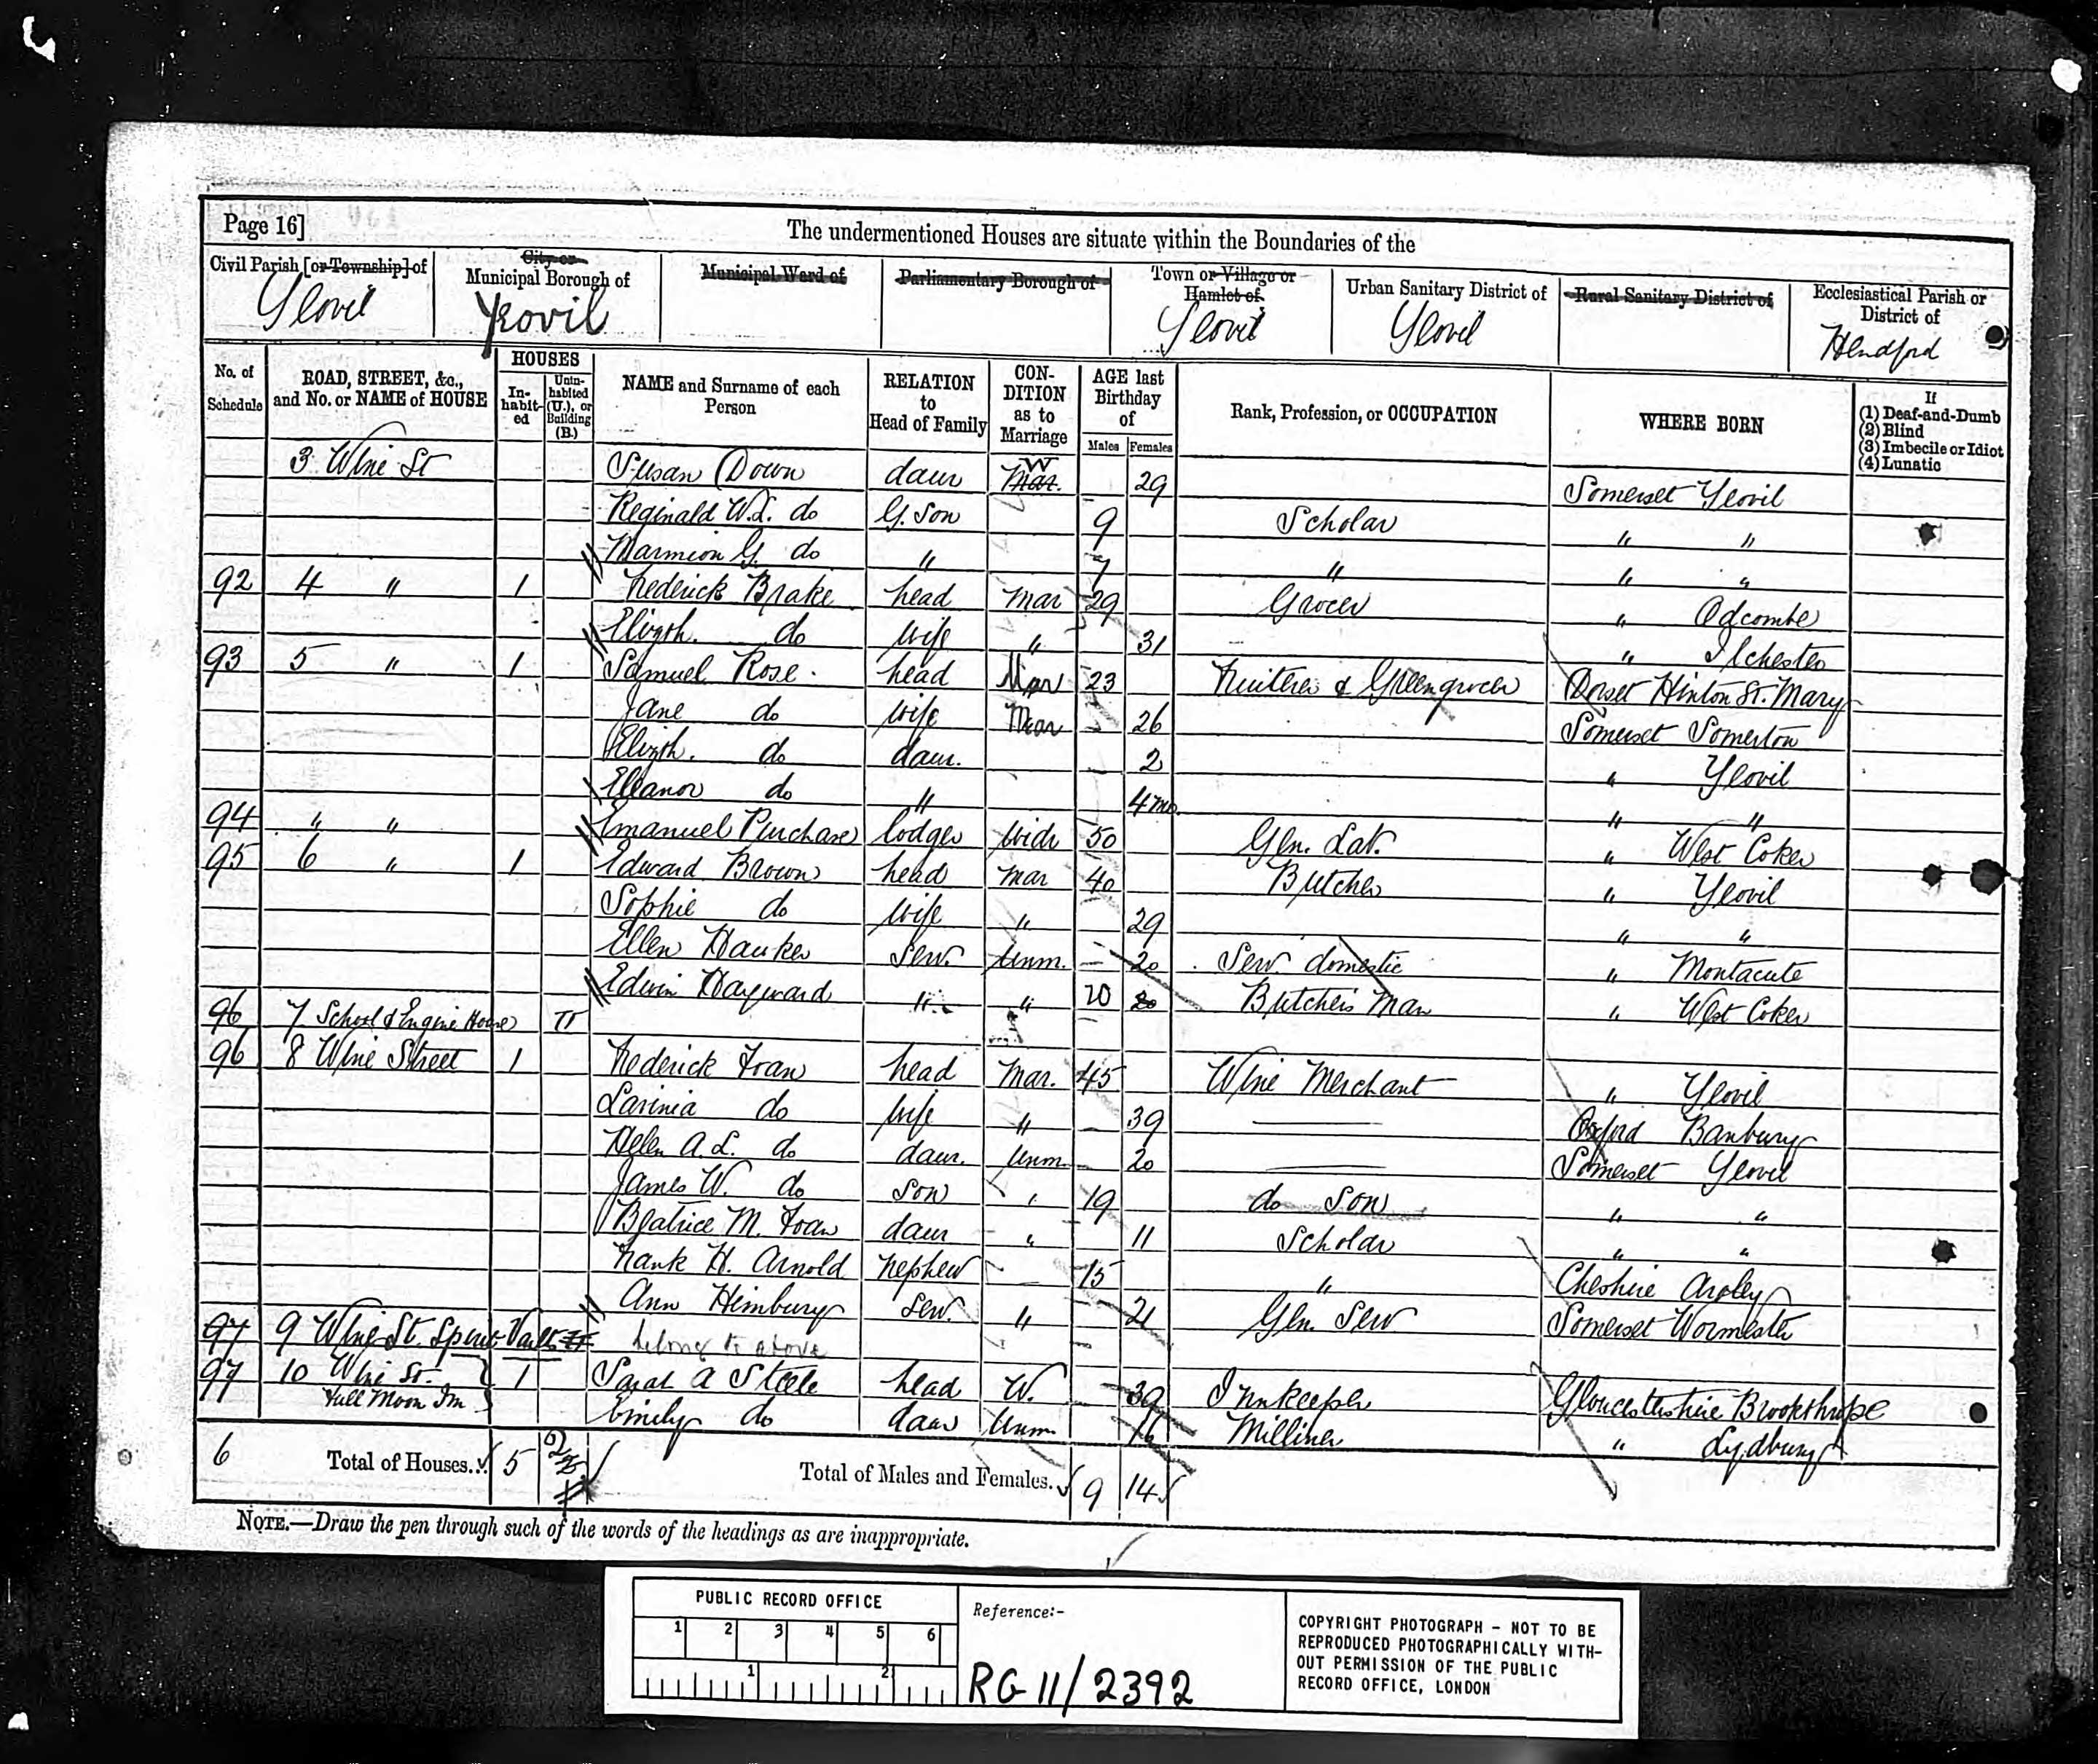 Page 16]
The undermentioned Houses are situate within the Boundaries of the
Civil Parish [or Township] of
City or Municipal Borough of
Municipal Ward of
Parliamentary Borough of
Town or Village or Hamlet of
Urban Sanitary District of
Rural Sanitary District of
Ecclesiastical Parish or District of
Yeovil Yeovil Yeovil Yeovil Hendford
No. of Schedule
ROAD, STREET, &c., and No. or NAME of HOUSE
HOUSES
Inhabited
Uninhabited (U.), or Building (B.)
NAME and Surname of each Person
RELATION to Head of Family
CONDITION as to Marriage
AGE last Birthday of
Males Females
Rank, Profession, or OCCUPATION
WHERE BORN
If
(1) Deaf-and-Dumb
(2) Blind
(3) Imbecile or Idiot
(4) Lunatic
3 Wine St Susan Down daur Mar. W 29 Somerset Yeovil
Reginald W.L. do G. Son 9 Scholar " "
Marmion G. do " 7 " " "
92 4 " 1 Frederick Brake head Mar 29 Grocer " Odcombe
Elizth. do wife " 31 " Ilchester
93 5 " 1 Samuel Rose head Mar 23 Fruiterer & Greengrocer Dorset Hinton St. Mary
Jane do wife Mar 26 Somerset Somerton
Elizth. do daur. 2 " Yeovil
Eleanor do " 4 mo. " "
94 " " Emanuel Purchase lodger Widr 50 Gen. Lab. " West Coker
95 6 " 1 Edward Brown head Mar 40 Butcher " Yeovil
Sophie do wife " 29 " "
Ellen Hauker Serv. Unm. 20 Serv. domestic " Montacute
Edwin Hayward " " 20 20 Butchers Man " West Coker
96 7 School & Engine House U
96 8 Wine Street 1 Frederick Toran head Mar. 45 Wine Merchant " Yeovil
Lavinia do wife " 39 Oxford Banbury
Helen A. L. do daur. Unm. 20 Somerset Yeovil
James W. do son " 19 do Son " "
Beatrice M. Toran daur " 11 Scholar " "
Frank H. Arnold nephew 15 " Cheshire
Ann Himbury Serv. " 21 Gen. Serv Somerset
97 9 Wine St. Spirit Vaults U belong to above
97 10 Wine St. 1 Sarah A Steele head W. 39 Innkeeper Gloucestershire Brookthrope
Full Moon Inn
Emily do daur Unm. 16 Milliner " Lydbury
6 Total of Houses... 5 2 Total of Males and Females. 9 14
NOTE.—Draw the pen through such of the words of the headings as are inappropriate.
PUBLIC RECORD OFFICE
1 2 3 4 5 6
1 2
Reference:-
RG 11/2392
COPYRIGHT PHOTOGRAPH - NOT TO BE
REPRODUCED PHOTOGRAPHICALLY WITH-
OUT PERMISSION OF THE PUBLIC
RECORD OFFICE, LONDON